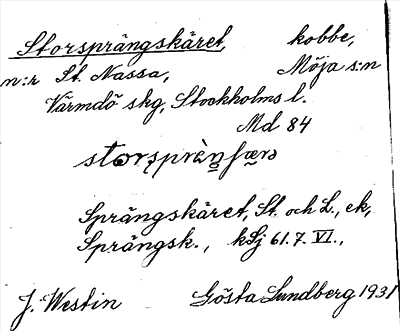 Storsprängskäret, kobbe,
n:r St. Nassa, Möja s:n
Värmdö skg, Stockholms l.
Md 84
Sprängskäret, St. och L., ek,
Sprängsk., kSj 61.7. VI.,
J. Westin Gösta Lundberg 1931